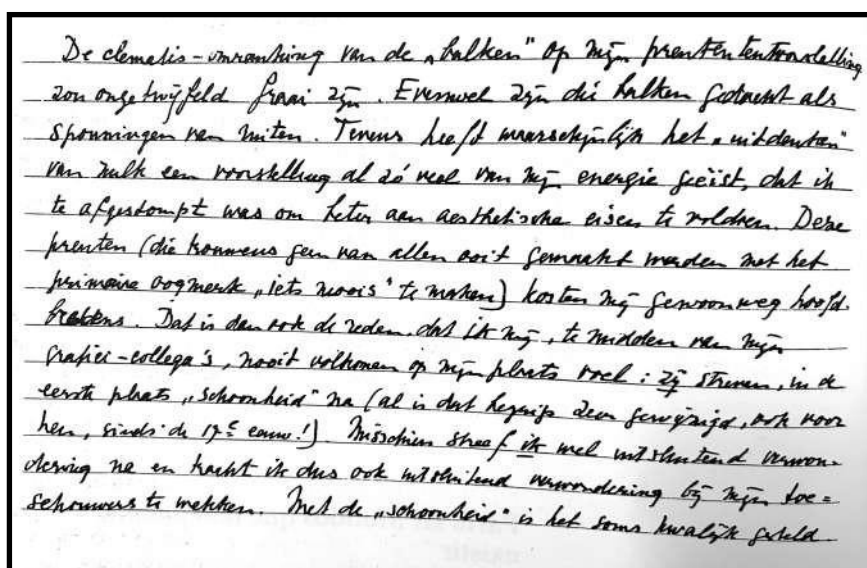 De clematis-omranking van de „balken" op mijn prententoonstelling
zou ongetwijfeld fraai zijn. Evenwel zijn die balken gedacht als
sponningen van ruiten. Tevens heeft waarschijnlijk het „uitdenken"
van zulk een voorstelling al zó veel van mijn energie geëist, dat ik
te afgestompt was om beter aan aesthetische eisen te voldoen. Deze
prenten (die trouwens geen van allen ooit gemaakt werden met het
primaire oogmerk „iets moois" te maken) kosten mij gewoonweg hoofd-
brekens. Dat is dan ook de reden, dat ik mij, te midden van mijn
grafici-collega's, nooit volkomen op mijn plaats voel: zij streven, in de
eerste plaats „schoonheid" na (al is dat begrip zeer gewijzigd, ook voor
hen, sinds de 17e eeuw!). Misschien streef ik wel uitsluitend verwon-
dering na en tracht ik dus ook uitsluitend verwondering bij mijn toe=
schouwers te wekken. Met de „schoonheid" is het soms kwalijk gesteld.